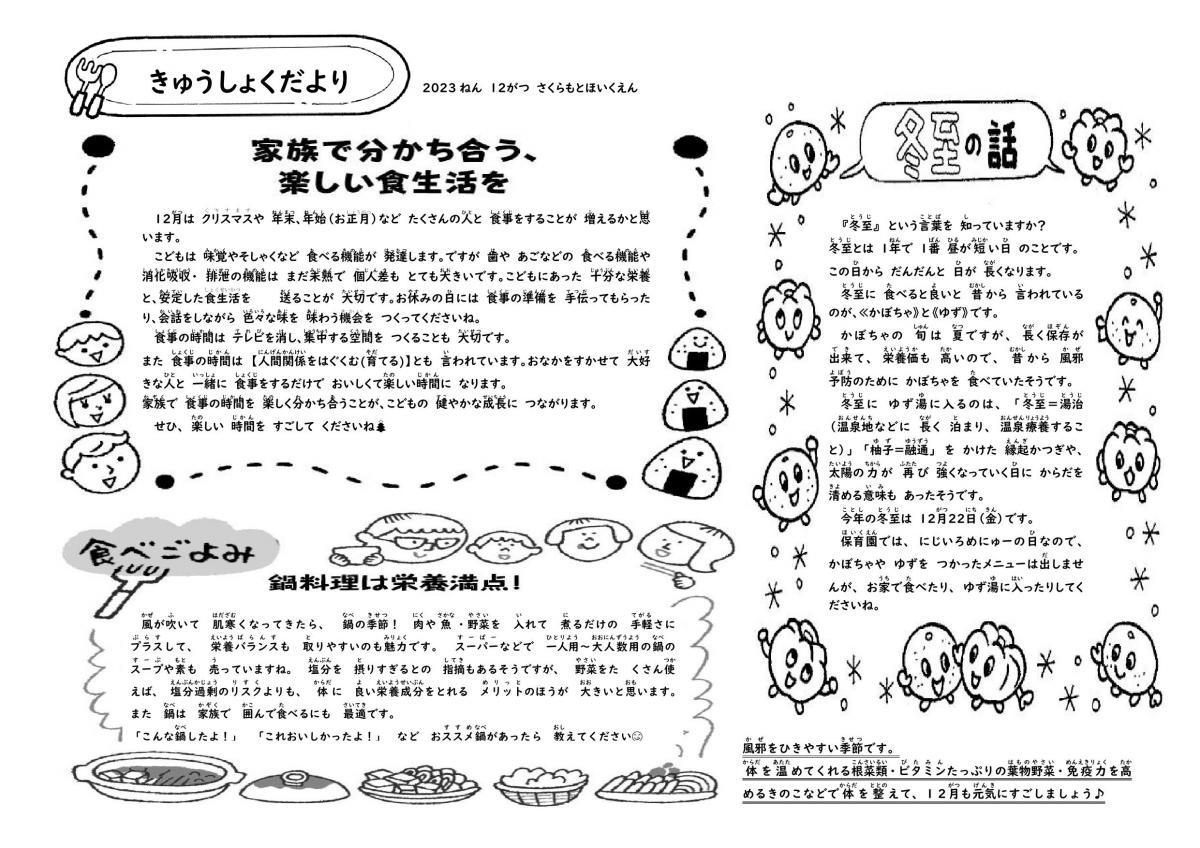 きゅうしょくだより
2023 ねん 12がつ さくらもとほいくえん
家族で分かち合う、
楽しい食生活を
12月は クリスマスや 年末、年始(お正月)など たくさんの人と 食事をすることが 増えるかと思
います。
こどもは 味覚やそしゃくなど 食べる機能が 発達します。ですが 歯や あごなどの 食べる機能や
消化吸収・排泄の機能は まだ未熟で 個人差も とても大きいです。こどもにあった 十分な栄養
と、安定した食生活を 送ることが 大切です。お休みの日には 食事の準備を 手伝ってもらった
り、会話をしながら 色々な味を 味わう機会を つくってくださいね。
食事の時間は テレビを消し、集中する空間を つくることも 大切です。
また 食事の時間は【人間関係をはぐくむ(育てる)】とも 言われています。おなかをすかせて 大好
きな人と 一緒に 食事をするだけで おいしくて楽しい時間に なります。
家族で 食事の時間を 楽しく分かち合うことが、こどもの 健やかな成長に つながります。
ぜひ、楽しい 時間を すごして くださいね🌲
食べごよみ
鍋料理は栄養満点!
風が吹いて 肌寒くなってきたら、 鍋の季節! 肉や魚・野菜を 入れて 煮るだけの 手軽さに
プラスして、 栄養バランスも 取りやすいのも魅力です。 スーパーなどで 一人用～大人数用の鍋の
スープや素も 売っていますね。 塩分を 摂りすぎるとの 指摘もあるそうですが、 野菜をた くさん使
えば、 塩分過剰のリスクよりも、 体に 良い栄養成分をとれる メリットのほうが 大きいと思います。
また 鍋は 家族で 囲んで食べるにも 最適です。
「こんな鍋したよ!」 「これおいしかったよ!」 など おススメ鍋があったら 教えてください☺
冬至の話
『冬至』という言葉を 知っていますか?
冬至とは 1年で 1番 昼が短い日 のことです。
この日から だんだんと 日が 長くなります。
冬至に 食べると良いと 昔から 言われている
のが、《かぼちゃ》と《ゆず》です。
かぼちゃの 旬は 夏ですが、 長く保存が
出来て、 栄養価も 高いので、 昔から 風邪
予防のために かぼちゃを 食べていたそうです。
冬至に ゆず湯に入るのは、「冬至＝湯治
(温泉地などに 長く 泊まり、温泉療養するこ
と)」「柚子＝融通」を かけた 縁起かつぎや、
太陽の力が 再び 強くなっていく日に からだを
清める意味も あったそうです。
今年の冬至は 12月22日(金)です。
保育園では、にじいろめにゅーの日なので、
かぼちゃや ゆずを つかったメニューは出しませ
んが、お家で食べたり、ゆず湯に入ったりしてく
ださいね。
風邪をひきやすい季節です。
体を温めてくれる根菜類・ビタミンたっぷりの葉物野菜・免疫力を高
めるきのこなどで体を整えて、12月も元気にすごしましょう♪